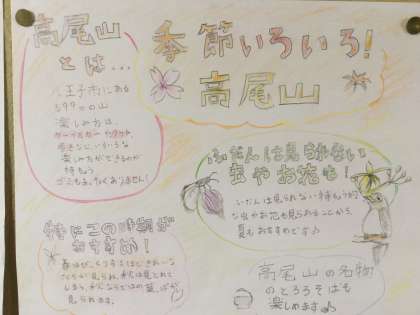 高尾山
とは...
八王子市にある
599mの山
楽しみ方は、
ケーブルカー
歩きなど、いろいろな
楽しみ方ができるのが
特ちょう
ゴミもよくなくありません!
季節いろいろ!
高尾山
ふだんは見られない
虫やお花も!
ふだんは見られない特ちょう的
な虫やお花も見られることから、
夏もおすすめです♪
特にこの時期が
おすすめ!
春は
見られ、秋は見とれて
しまう、
見られます。
高尾山の名物
のとろろそばも
楽しめます♪